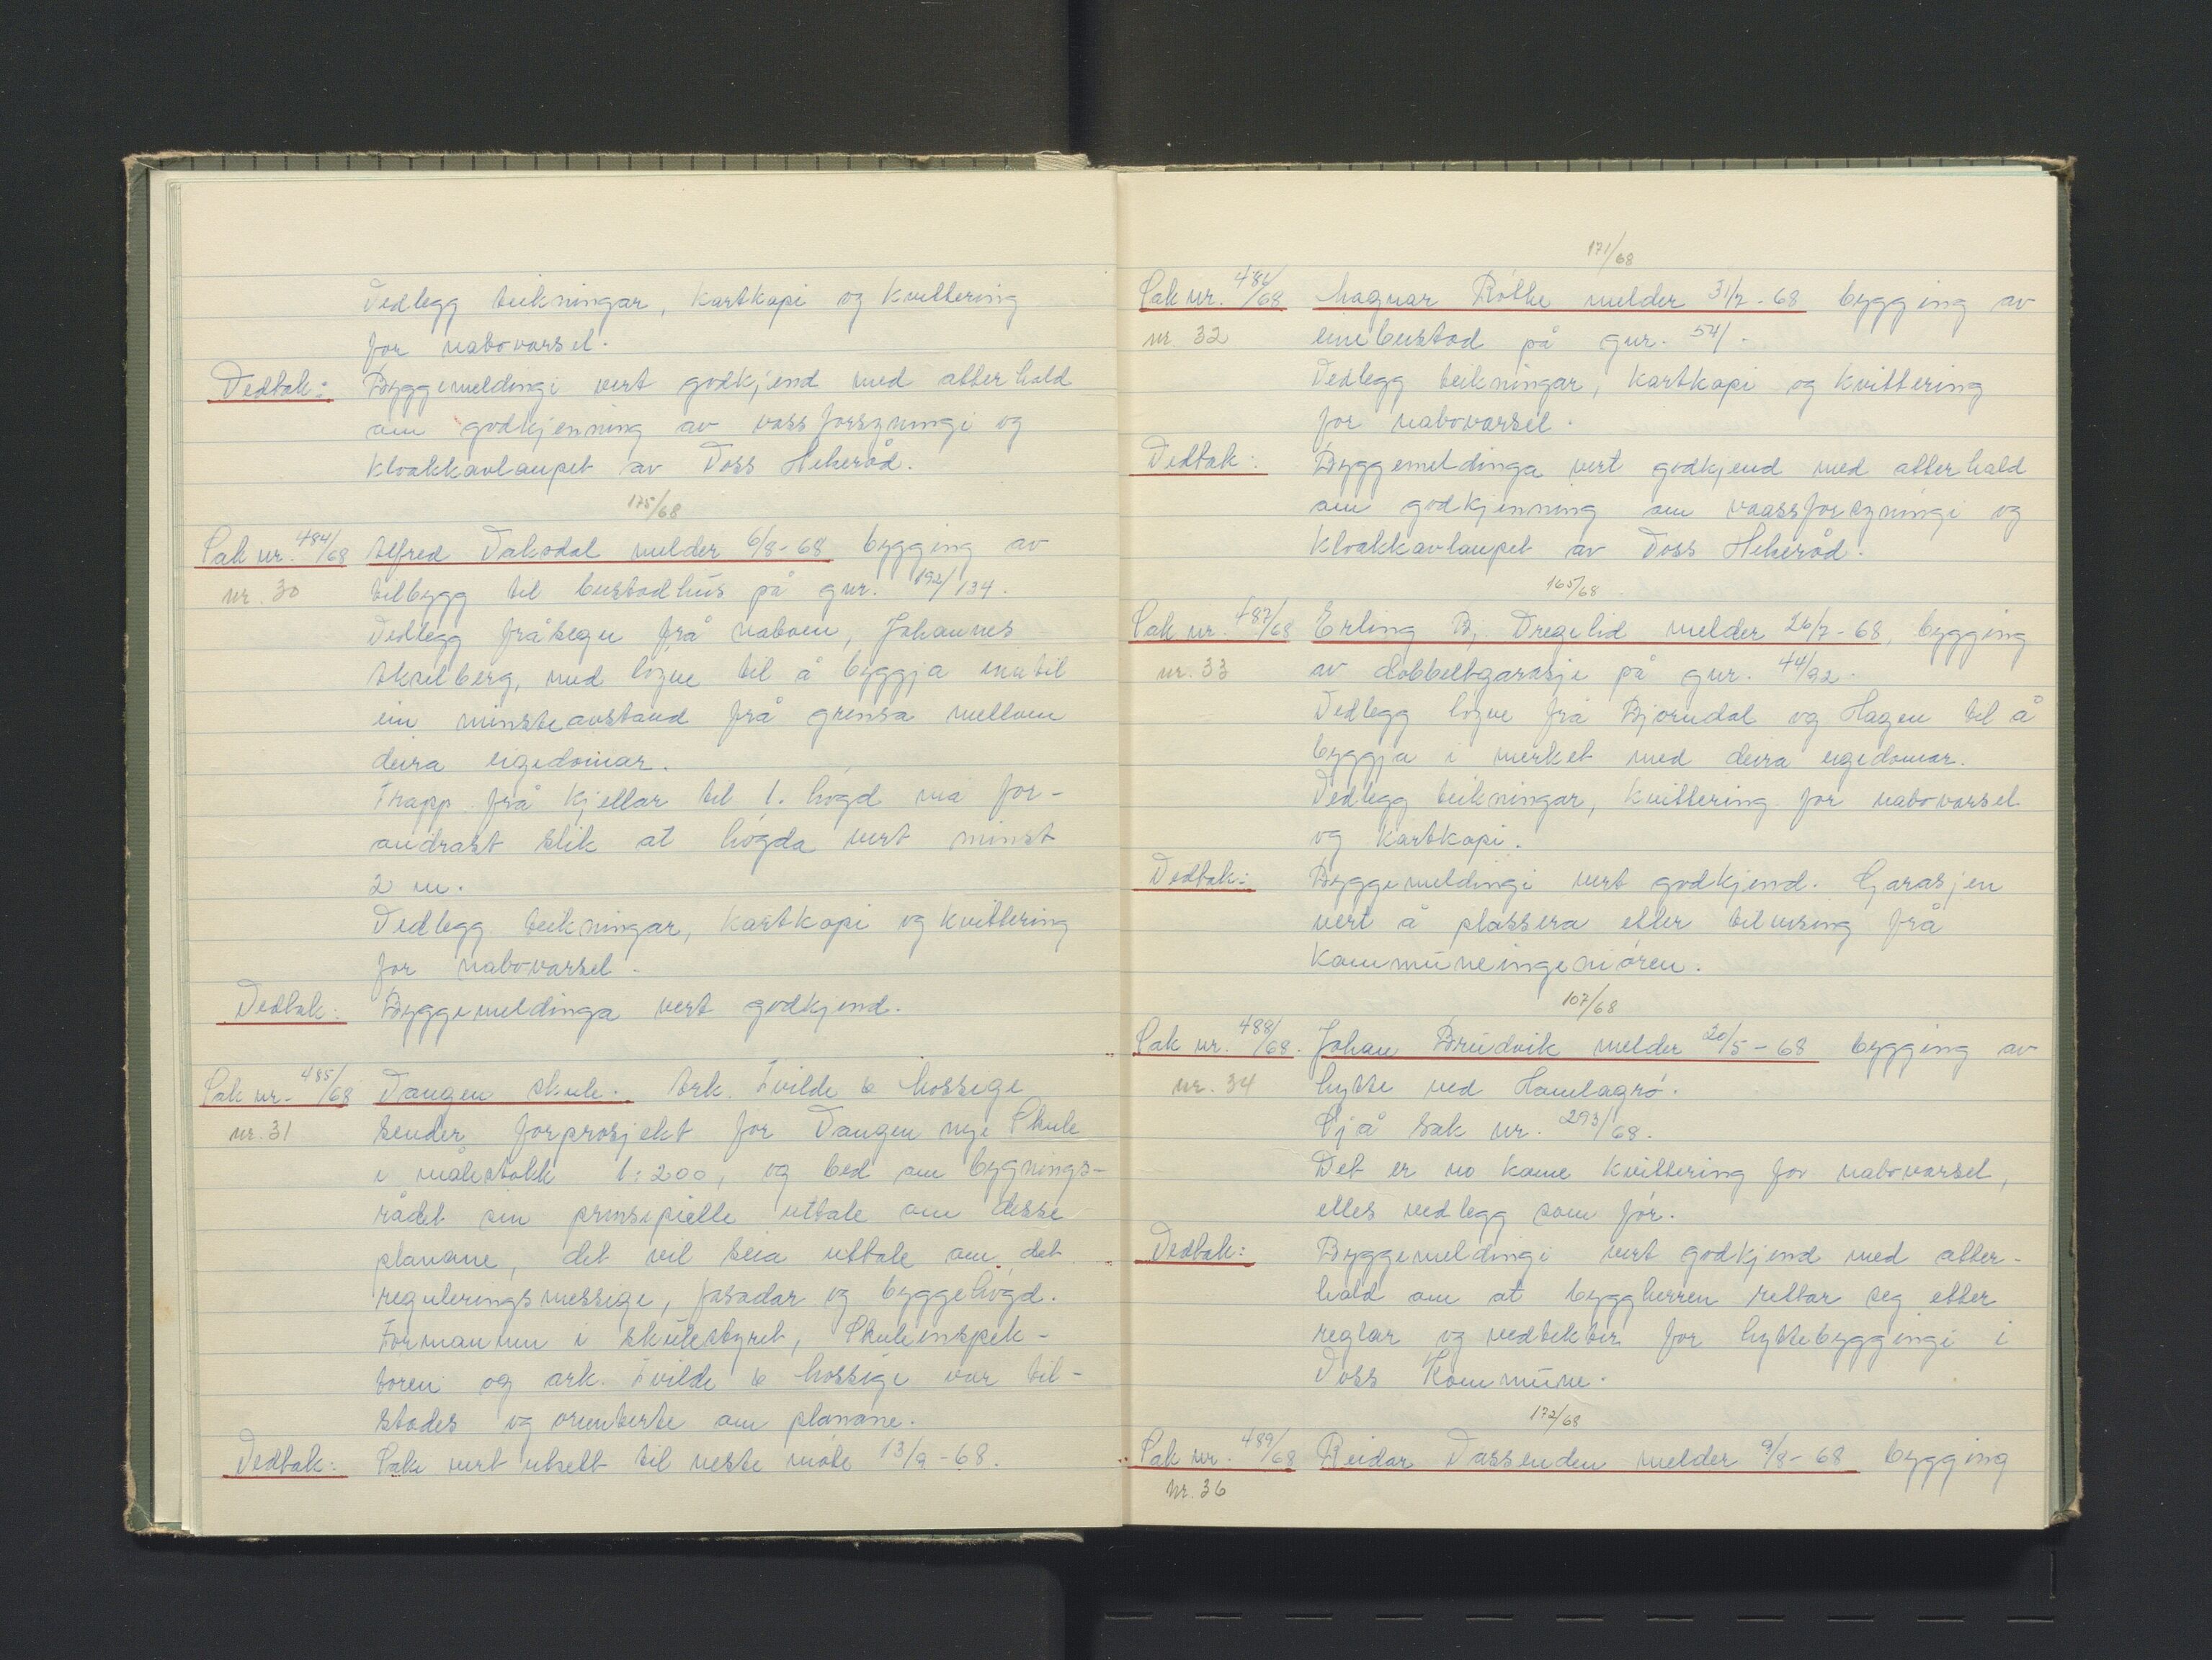 Vedlegg teikningar, kartkopi og kvittering
for nabovarsel.
Vedtak: Byggemeldingi vert godkjend med atterhald
om godkjenning av vassforsyningi og
kloakkavlaupet av Voss Helseråd.
175/68
Sak nr. 484/68 Alfred Vaksdal melder 6/8-68 bygging av
nr. 30 tilbygg til bustadhus på gnr. 192/134.
Vedlegg fråsegn frå naboen, Johannes
Akselberg, med løyve til å byggja inntil
ein minsteavstand frå grensa mellom
deira eigedomar.
Trapp frå kjellar til 1. høgd må for-
andrast slik at høgda vert minst
2 m.
Vedlegg teikningar, kartkopi og kvittering
for nabovarsel.
Vedtak: Byggemeldinga vert godkjend.
Sak nr. 485/68 Vangen skule. Ark. Tvilde & Mossige
nr. 31 sender forprosjekt for Vangen nye Skule
i målestokk 1:200, og bed om bygnings-
rådet sin prinsipielle uttale om desse
planane, det vil seia uttale om det
reguleringsmessige, fasadar og byggehøgd.
Formannen i skulestyret, Skuleinspek-
tøren og ark. Tvilde & Mossige var til-
stades og orienterte om planane.
Vedtak: Saki vert utsett til neste møte 13/9-68.
171/68
Sak nr. 486/68 Magnar Rothe melder 31/7-68 bygging av
nr 32 einebustad på gnr. 54/ .
Vedlegg teikningar, kartkopi og kvittering
for nabovarsel.
Vedtak: Byggemeldinga vert godkjend med atterhald
om godkjenning om vaassforsyningi og
kloakkavlaupet av Voss Helseråd.
165/68
Sak nr. 487/68 Erling B. Dregelid melder 26/7-68, bygging
nr. 33 av dobbeltgarasje på gnr. 44/92.
Vedlegg løyve frå Bjørndal og Hagen til å
byggja i merket med deira eigedomar.
Vedlegg teikningar, kvittering for nabovarsel
og kartkopi.
Vedtak: Byggemeldingi vert godkjend. Garasjen
vert å plassera etter tilvising frå
kommuneingeniøren.
107/68
Sak nr. 488/68. Johan Brudvik melder 20/5-68 bygging av
nr. 34 hytte ved Hamlagrø.
Sjå sak nr. 293/68.
Det er no kome kvittering for nabovarsel,
elles vedlegg som før.
Vedtak: Byggemeldingi vert godkjend med atter-
hald om at byggherren rettar seg etter
reglar og vedtekter for hyttebyggingi i
Voss Kommune.
172/68
Sak nr. 489/68 Reidar Vassenden melder 9/8-68 bygging
Nr. 36